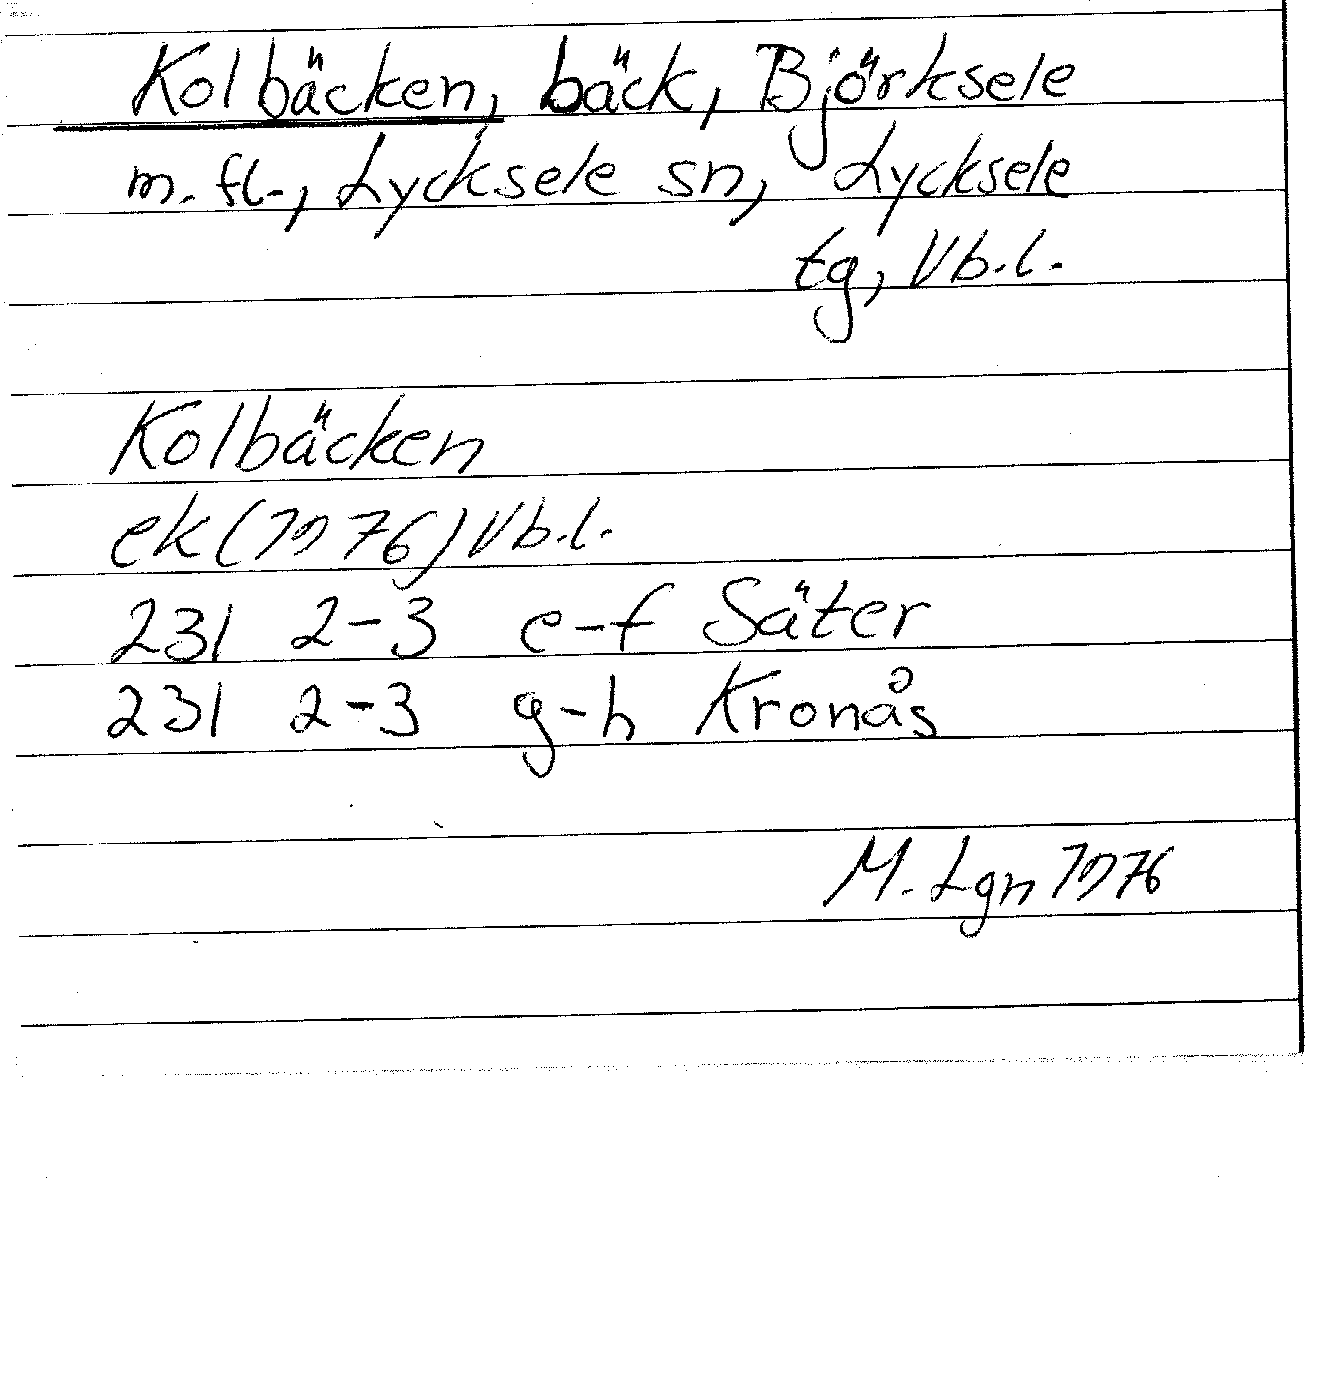 Kolbäcken, bäck, Björksele
m. fl., Lycksele sn, Lycksele
tg, Vb.l.
Kolbäcken
ek (1976) Vb.l.
231 2-3 e-f Säter
231 2-3 g-h Kronås
M. Lgn 1976